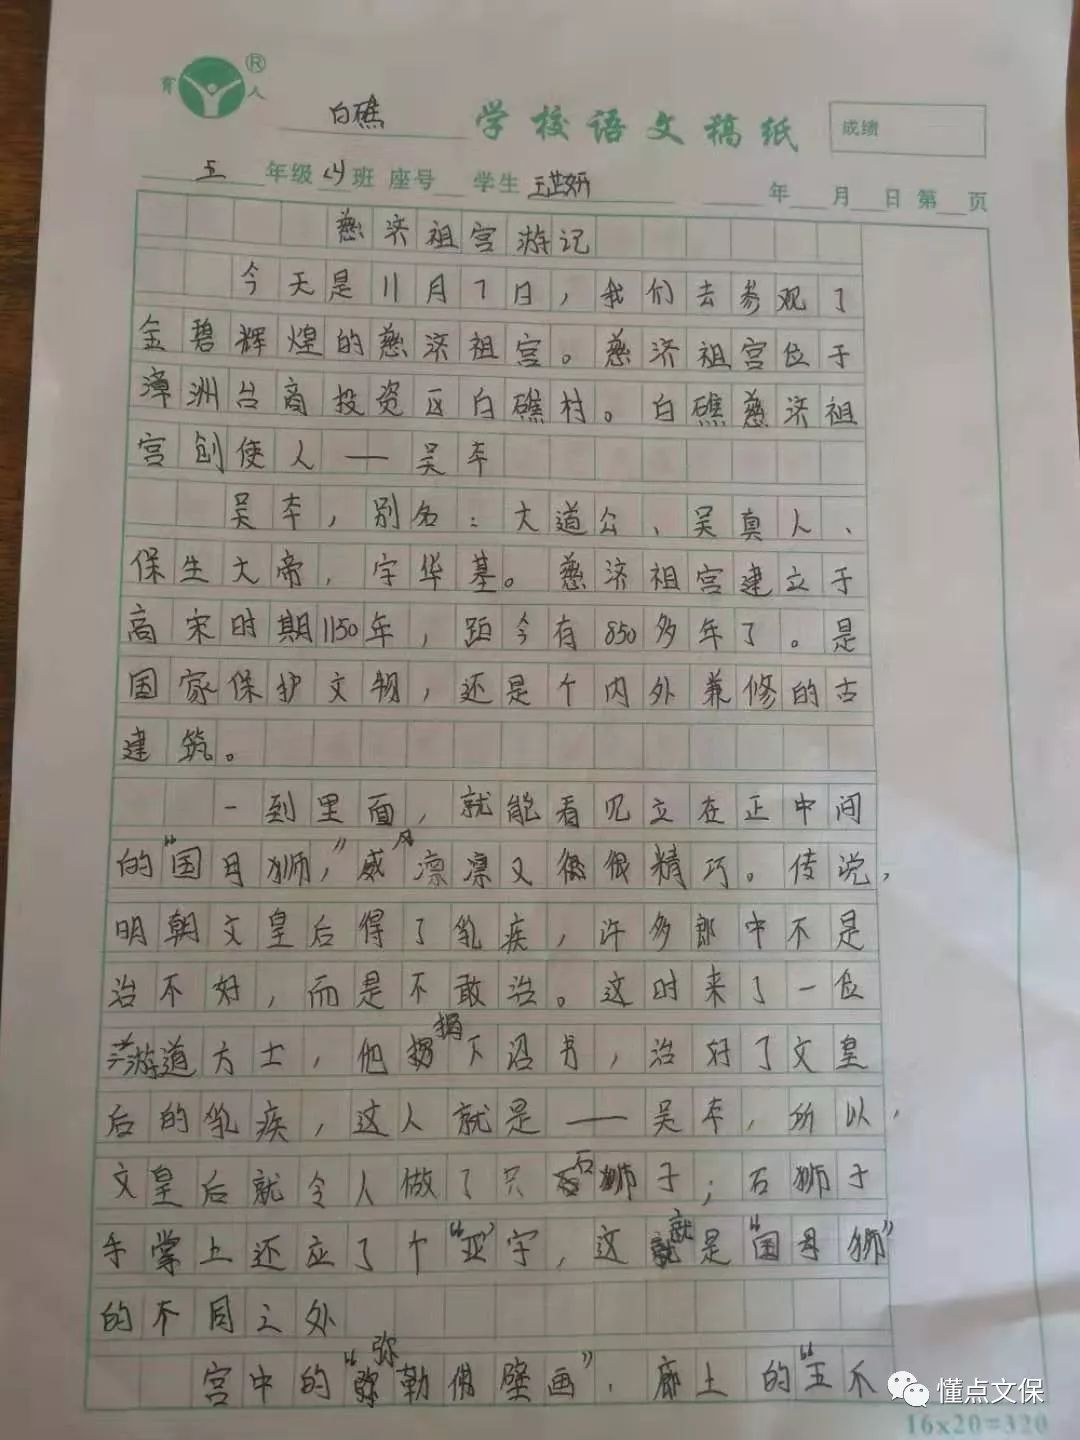 育人®
白礁 学校语文稿纸 成绩
五年级(4)班 座号 学生 年 月 日 第 页
慈济祖宫游记
今天是11月7日，我们去参观了
金碧辉煌的慈济祖宫。慈济祖宫位于
漳洲台商投资区白礁村。白礁慈济祖
宫创使人——吴夲
吴夲，别名：大道公、吴真人、
保生大帝，字华基。慈济祖宫建立于
高宋时期1150年，距今有850多年了。是
国家保护文物，还是个内外兼修的古
建筑。
一到里面，就能看见立在正中间
的“国母狮，”威风凛凛又很很精巧。传说，
明朝文皇后得了乳疾，许多郎中不是
治不好，而是不敢治。这时来了一位
游道方士，他揭下诏书，治好了文皇
后的乳疾，这人就是——吴夲，所以，
文皇后就令人做了只石狮子；石狮子
手掌上还应了个“亚”字，这就是“国母狮”
的不同之处
宫中的“弥勒佛壁画”，廊上的“五不
懂点文保
16x20=320